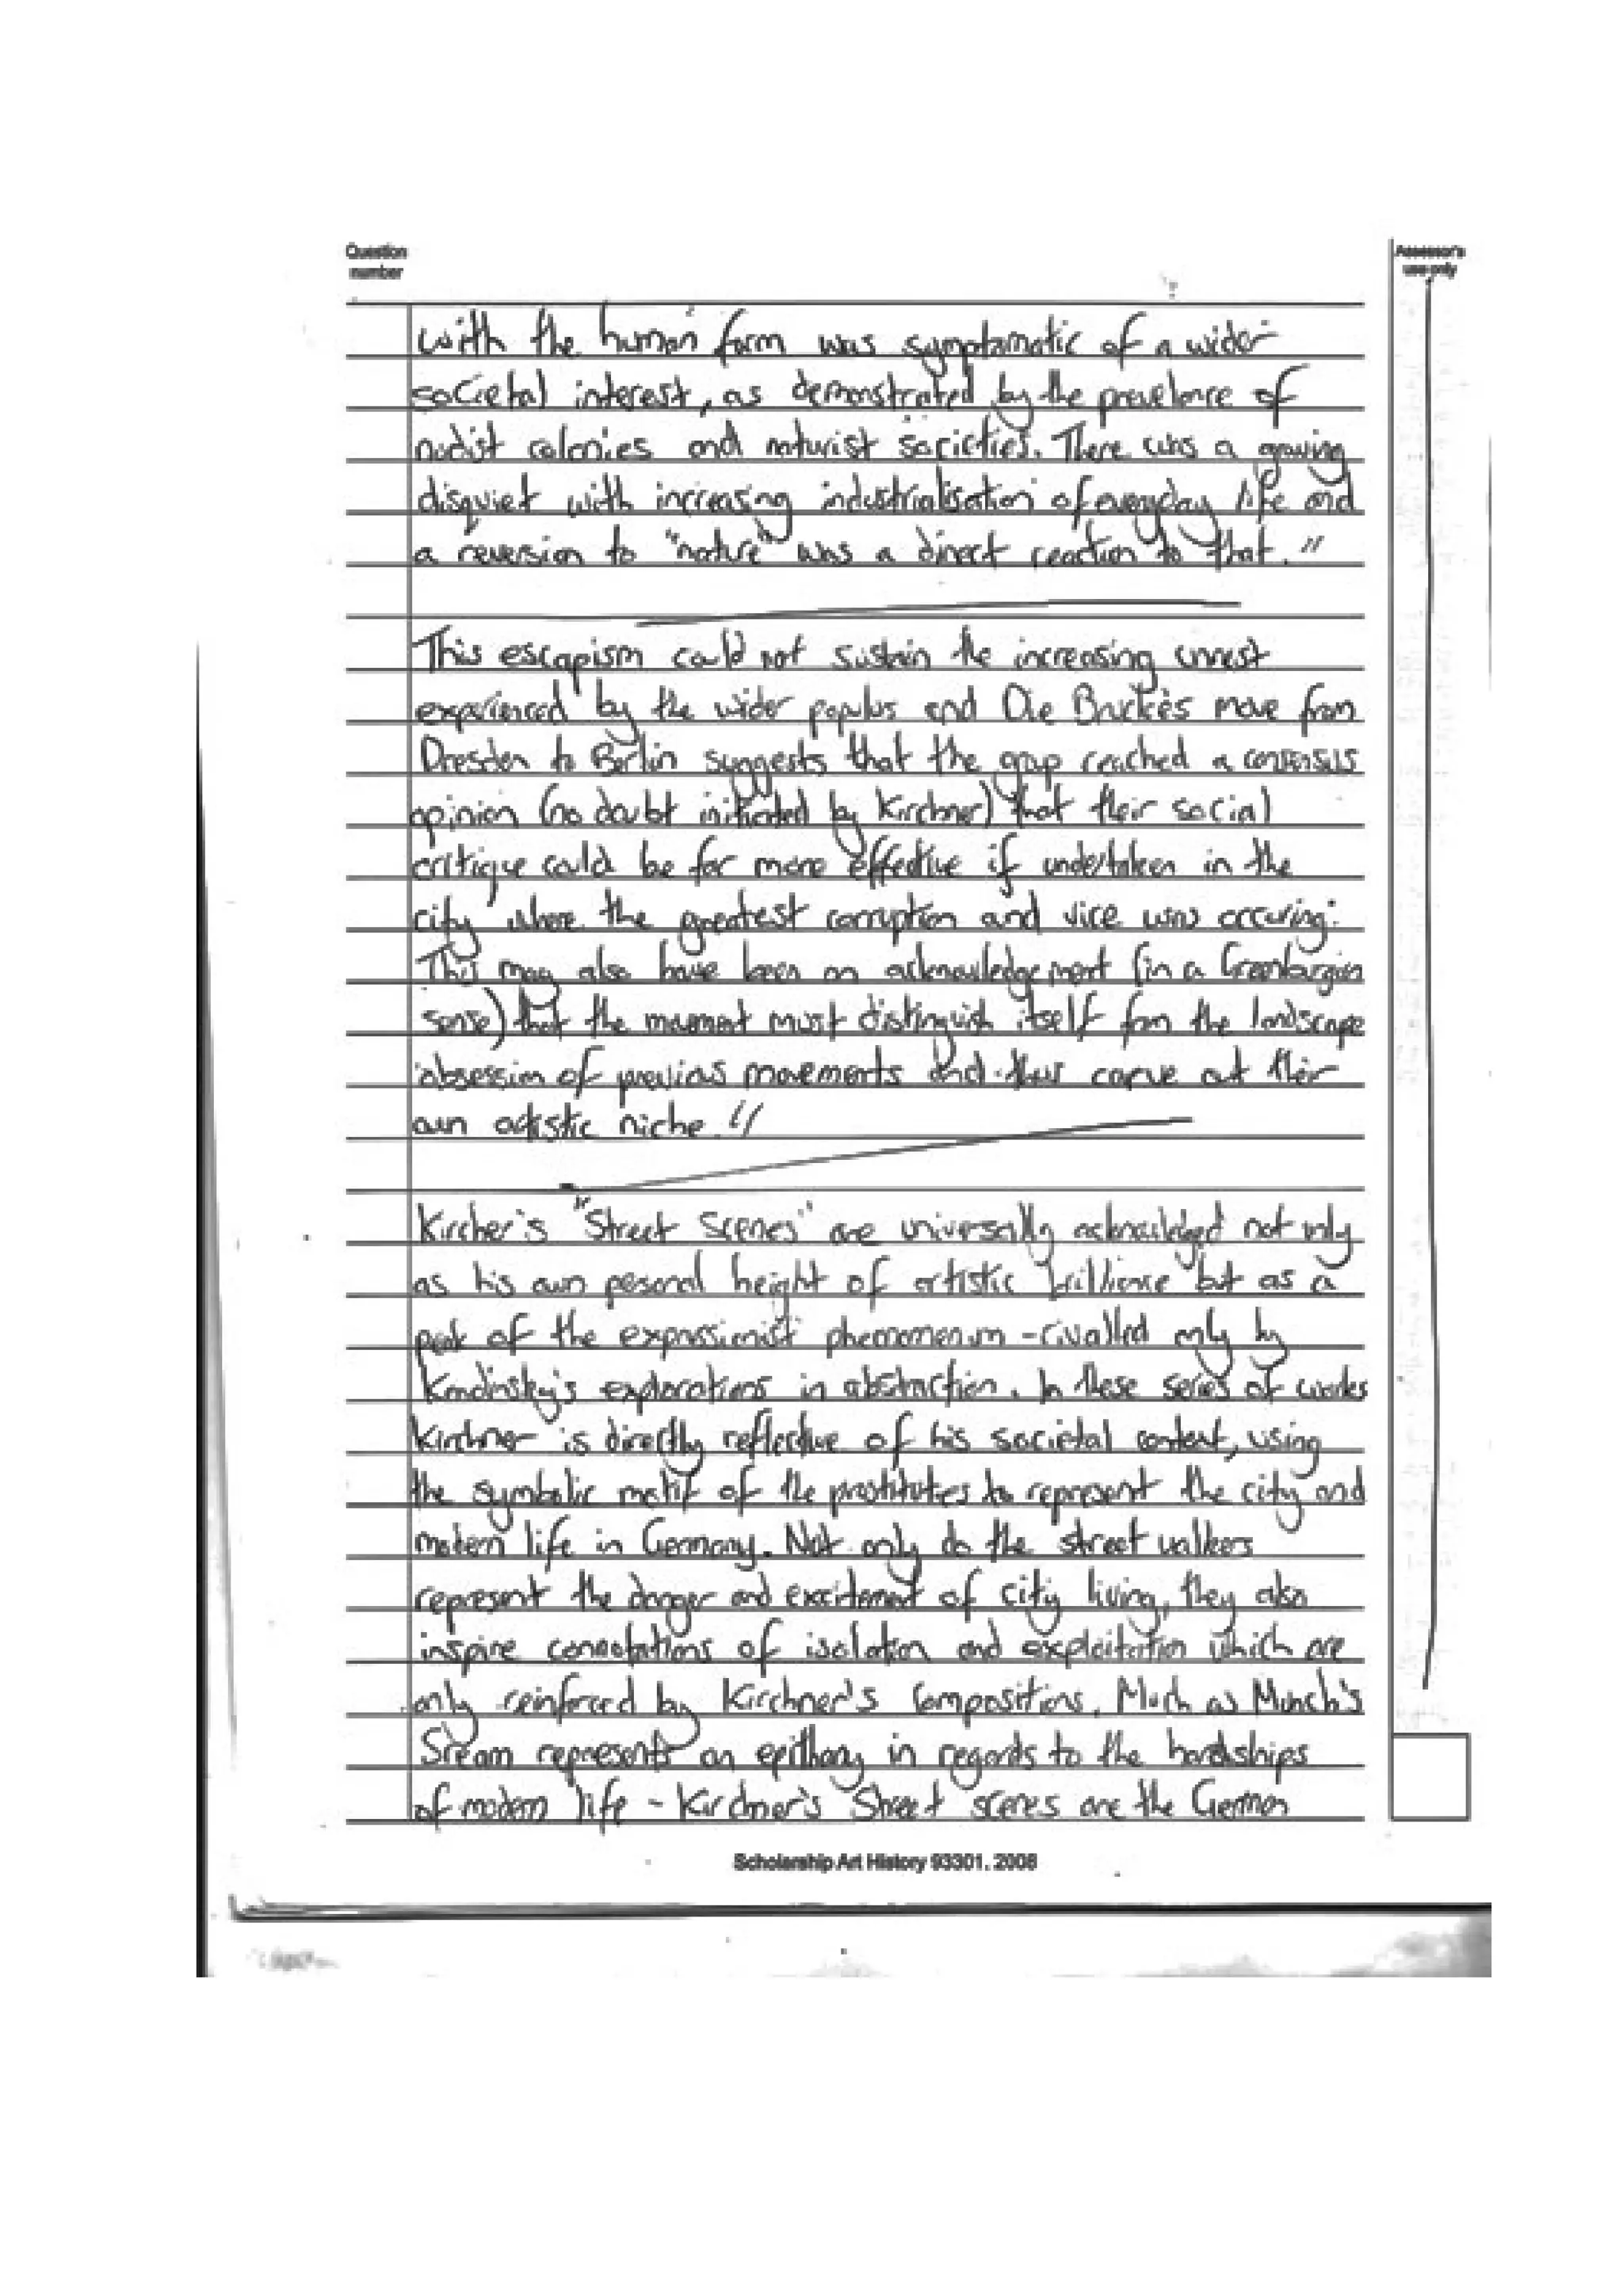 Question
number
Assessor's
use only
with the human form was symptomatic of a wider
societal interest, as demonstrated by the prevelence of
nudist colonies and naturist societies. There was a growing
disquiet with increasing industrialisation of everyday life and
a reversion to "nature" was a direct reaction to that. //
This escapism could not sustain the increasing unrest
experienced by the wider populus and Die Brucke's move from
Dresden to Berlin suggests that the group reached a consensus
opinion (no doubt initiated by Kirchner) that their social
critique could be far more effective if undertaken in the
city where the greatest corruption and vice was occuring.
This may also have been an acknowledgement (in a Greenburgian
sense) that the movement must distinguish itself from the landscape
obsession of previous movements and thus carve out their
own artistic niche. //
Kircher's "Street Scenes" are universally acknowledged not only
as his own personal height of artistic brillience but as a
peak of the expressionist phenomenum - rivalled only by
Kandinsky's explorations in abstraction. In these series of works
Kirchner is directly reflective of his societal context, using
the symbolic motif of the prostitutes to represent the city and
modern life in Germany. Not only do the street walkers
represent the danger and excitement of city living, they also
inspire connotations of isolation and exploitation which are
only reinforced by Kirchner's compositions. Much as Munch's
Sream represents an epithany in regards to the hardships
of modern life - Kirchner's Street scenes are the German
Scholarship Art History 93301, 2008